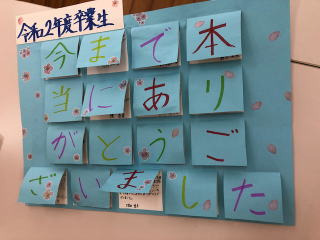 令和2年度卒業生
今まで本
当にあり
がとうご
ざいました